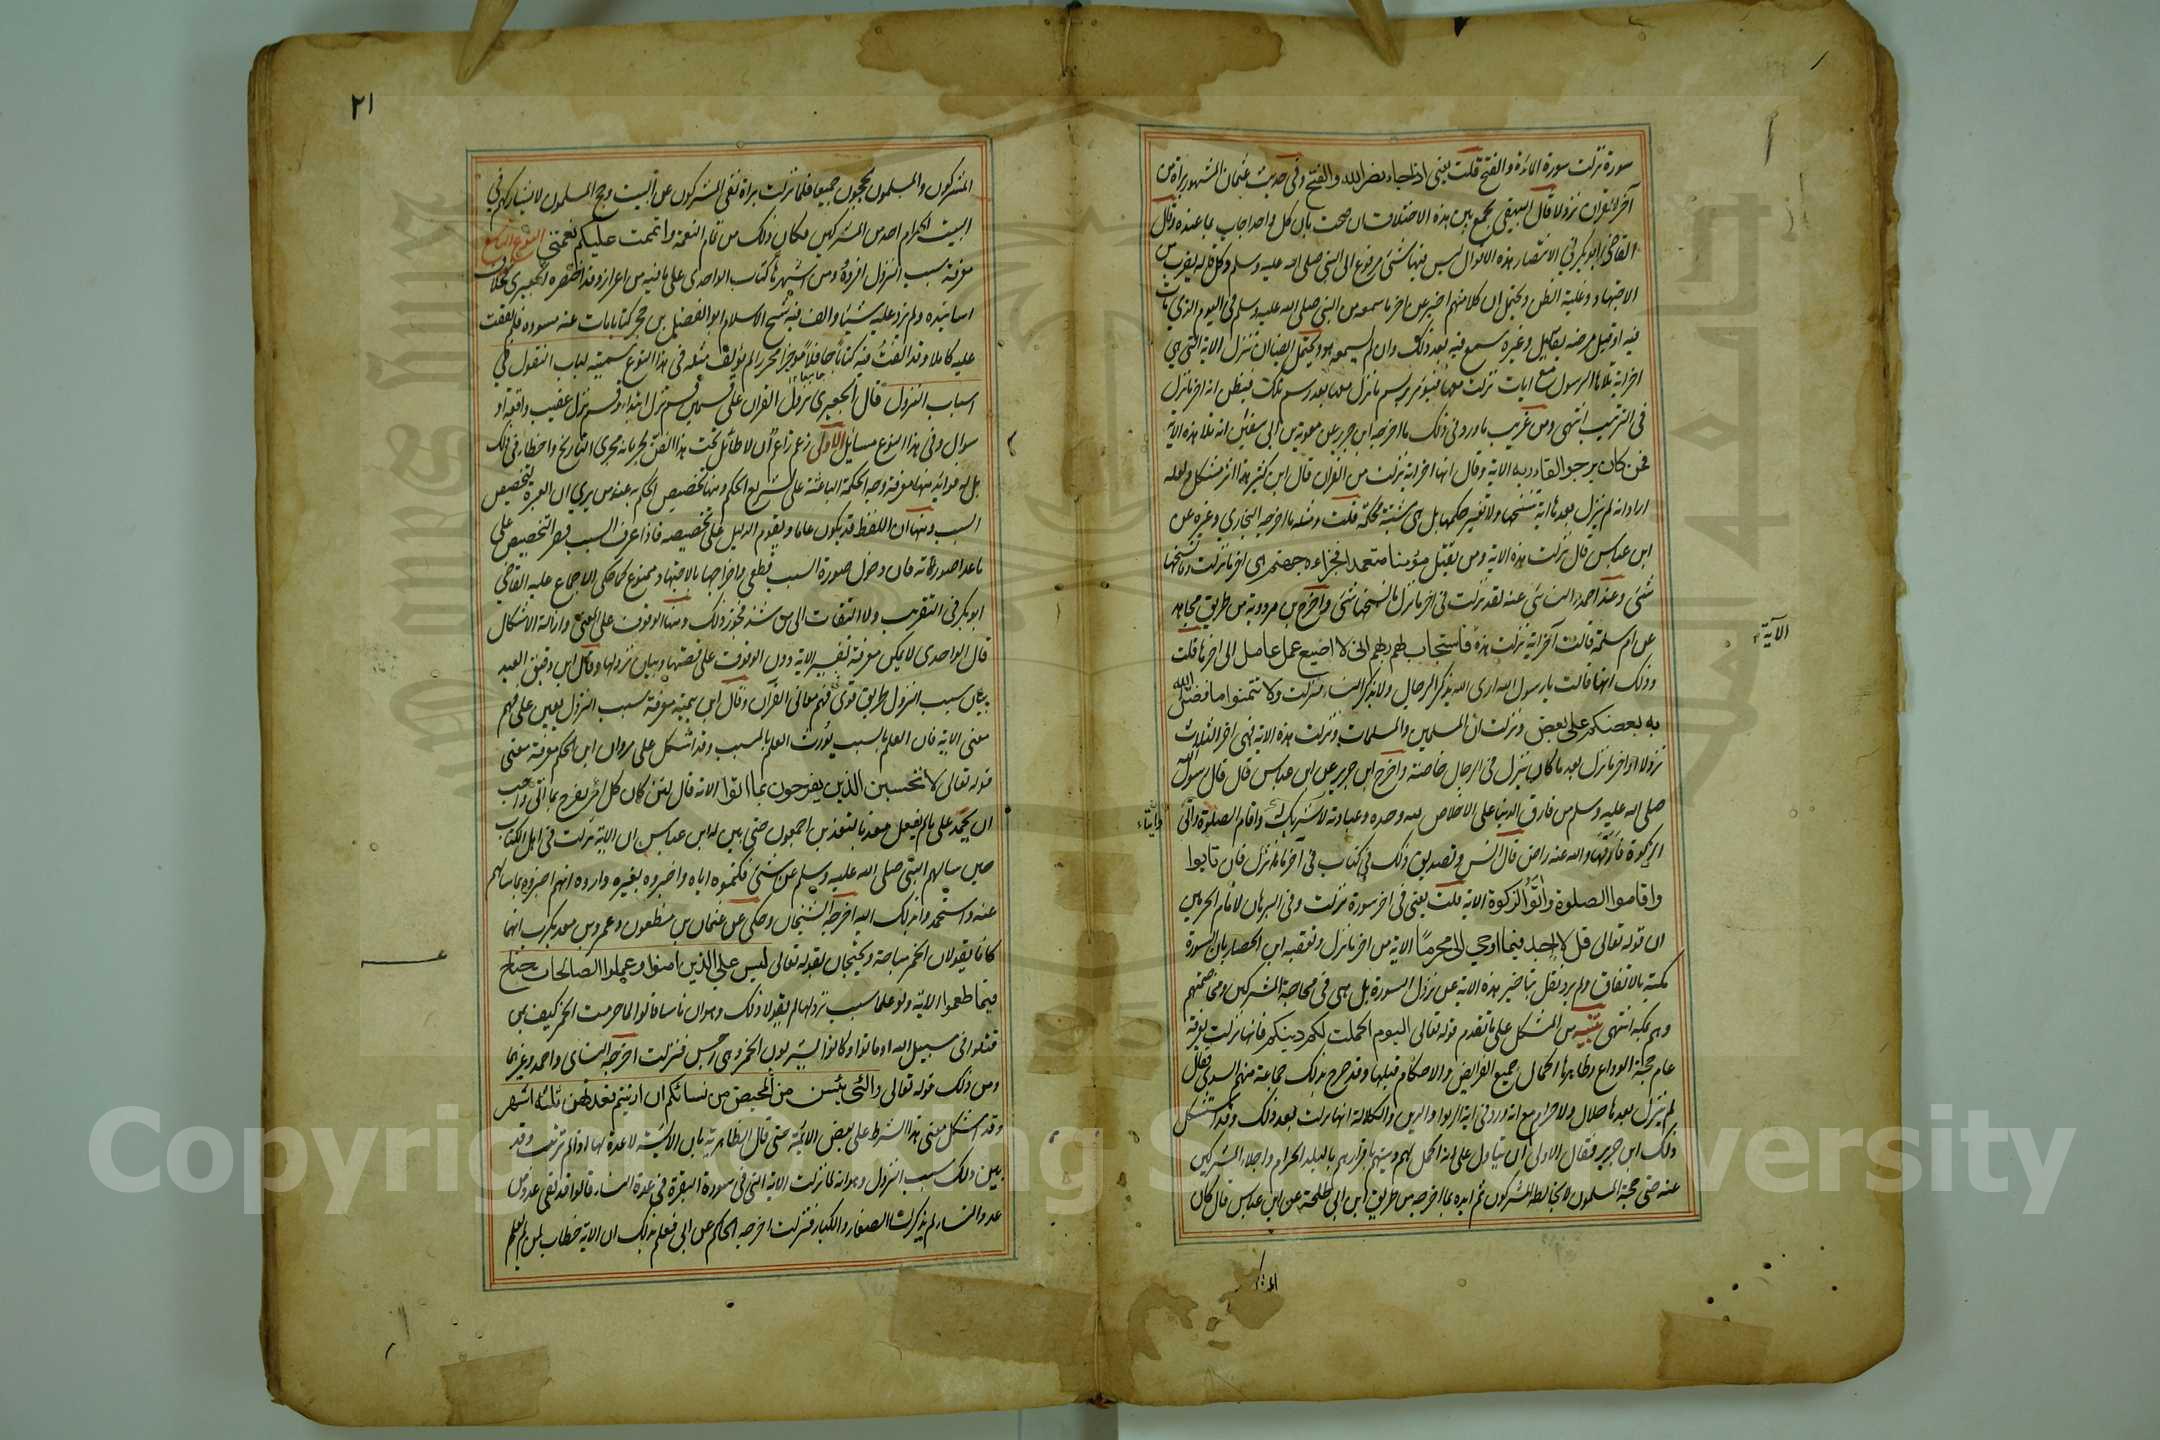 سورة نزلت سورة المائدة والفتح قلت يعني اذا جاء نصر الله والفتح وفي حديث عثمان المشهور براءة من
آخر القران نزولا قال البيهقي يجمع بين هذه الاختلافات ان صحت بان كل واحد اجاب بما عنده وقال
القاضي ابو بكر في الانتصار هذه الاقوال ليس فيها شئ مرفوع الى النبي صلى الله عليه وسلم وكل قاله بضرب من
الاجتهاد وغلبة الظن ويحتمل ان كلا منهم اخبر عن اخر ما سمعه من النبي صلى الله عليه وسلم في اليوم الذي مات
فيه او قبل مرضه بقليل وغيره سمع منه بعد ذلك وان لم يسمعه هو ويحتمل ايضا ان تنزل الاية التي هي
اخر اية تلاها الرسول مع ايات نزلت معها فيؤمر برسم ما نزل معها بعد رسم تلك فيظن انه اخر ما نزل
في الترتيب انتهى ومن غريب ما ورد في ذلك ما اخرجه ابن جرير عن معوية بن ابي سفين انه تلا هذه الاية
فمن كان يرجو لقاء ربه الاية وقال انها اخر اية نزلت من القران قال ابن كثير هذا اثر مشكل ولعله
اراد انه لم ينزل بعدها اية تنسخها ولا تغير حكمها بل هي مثبتة محكمة قلت ومثله ما اخرجه البخاري وغيره عن
ابن عباس قال نزلت هذه الاية ومن يقتل مؤمنا متعمدا فجزاءه جهنم هي اخر ما نزلت وما نسخها
شئ وعند احمد والنسائي عنه لقد نزلت في اخر ما نزل ما نسخها شئ واخرج بن مردوية من طريق مجاهد
عن ام سلمة قالت آخر اية نزلت هذه فاستجاب لهم ربهم اني لا اضيع عمل عامل الى اخرها قلت
وذلك انها قالت يا رسول الله ارى الله يذكر الرجال ولا يذكر النساء فنزلت ولا تتمنوا ما فضل الله
به بعضكم على بعض ونزلت ان المسلمين والمسلمات ونزلت هذه الاية فهي اخر الثلاث
نزولا او اخر ما نزل بعد ما كان ينزل في الرجال خاصة واخرج ابن جرير عن ابن عباس قال قال رسول الله
صلى الله عليه وسلم من فارق الدنيا على الاخلاص لله وحده وعبادته لا شريك له واقام الصلوة واتى
الزكوة فارقها والله عنه راض قال انس وتصديق ذلك في كتاب في آخر ما نزل فان تابوا
واقاموا الصلوة واتوا الزكوة الاية قلت يعني في اخر سورة نزلت وفي البرهان لامام الحرمين
ان قوله تعالى قل لا اجد فيما اوحي الي محرمًا الاية من اخر ما نزل وتعقبه ابن الحصار بان السورة
مكية بالاتفاق ولم يرد نقل بتاخير هذه الاية عن نزول السورة بل هي في محاجة المشركين ومخاصمتهم
وهم بمكة انتهى تنبيه من المشكل على ما تقدم قوله تعالى اليوم اكملت لكم دينكم فانها نزلت بعرفة
عام حجة الوداع وظاهرها اكمال جميع الفرايض والاحكام قبلها وقد صرح بذلك جماعة منهم السدي فقال
لم ينزل بعدها حلال ولا حرام مع انه ورد في اية الربوا والدين والكلالة انها نزلت بعد ذلك وقد استشكل
ذلك ابن جرير فقال الاولى ان يتاول على انه اكمل لهم دينهم باقرارهم بالبلد الحرام واجلاء المشركين
عنه حتى حجه المسلمون لا يخالطهم المشركون ثم ايده بما اخرجه من طريق ابن ابي طلحة عن ابن عباس قال كان
الآية
وايتاء
المشركون
٢١
المشركون والمسلمون يحجون جميعا فلما نزلت براة نفي المشركون عن البيت وحج المسلمون لا يشاركهم في
البيت الحرام احد من المشركين فكان ذلك من تمام النعمة واتممت عليكم نعمتي النوع التاسع
معرفة سبب النزول افرده ومن اشهرها كتاب الواحدي على ما فيه من اعواز وقد اختصره الجعبري فحذف
اسانيده ولم يزد عليه شيئا والف فيه شيخ الاسلام ابو الفضل بن حجر كتابا مات عنه مسودة فلم نقف
عليه كاملا وقد الفت فيه كتابا حافلا موجزا محررا لم يؤلف مثله في هذا النوع سميته لباب النقول في
اسباب النزول قال الجعبري نزول القران على قسمين قسم نزل ابتداء وقسم نزل عقيب واقعة او
سوال وفي هذا النوع مسايل الاولى زعم زاعم ان لا طائل تحت هذا الفن لجريانه مجرى التاريخ واخطا في ذلك
بل له فوائد منها معرفة وجه الحكمة الباعثة على تشريع الحكم ومنها تخصيص الحكم به عند من يرى ان العبرة بتخصيص
السبب ومنها ان اللفظ قد يكون عاما ويقوم الدليل على تخصيصه فاذا عرف السبب قصر التخصيص على
ما عدا صورته فان دخول صورة السبب قطعي واخراجها بالاجتهاد ممنوع كما حكى الاجماع عليه القاضي
ابو بكر في التقريب ولا التفات الى من شذ فجوز ذلك ومنها الوقوف على المعنى وازالة الاشكال
قال الواحدي لا يمكن معرفة تفسير الاية دون الوقوف على قصتها وبيان نزولها وقال ابن دقيق العيد
بيان سبب النزول طريق قوي في فهم معاني القران وقال ابن تيمية معرفة سبب النزول يعين على فهم
معنى الاية فان العلم بالسبب يورث العلم بالمسبب وقد اشكل على مروان ابن الحكم معرفة معنى
قوله تعالى لا تحسبن الذين يفرحون بما اتوا الاية قال لئن كان كل امرء يفرح بما اتى واحب
ان يحمد على ما لم يفعل معذبا لنعذبن اجمعون حتى بين له ابن عباس ان الاية نزلت في اهل الكتاب
حين سالهم النبي صلى الله عليه وسلم عن شئ فكتموه اياه واخبروه بغيره واروه انهم اخبروه بما سالهم
عنه واستحمدوا بذلك اليه اخرجه الشيخان وحكي عن عثمان بن مظعون وعمرو بن معديكرب انهما
كانا يقولان الخمر مباحة ويحتجان بقوله تعالى ليس على الذين امنوا وعملوا الصالحات جناح
فيما طعموا الاية ولو علما سبب نزولها لم يقولا ذلك وهو ان ناسا قالوا لما حرمت الخمر كيف بمن
قتلوا في سبيل الله او ماتوا وكانوا يشربون الخمر وهي رجس فنزلت اخرجه النسائي واحمد وغيرهما
ومن ذلك قوله تعالى والئي يئسن من المحيض من نسائكم ان ارتبتم فعدتهن ثلثة اشهر
وقد اشكل معنى هذا الشرط على بعض الائمة حتى قال الظاهرية بان الايسة لا عدة لها اذا لم ترتب وقد
بين ذلك سبب النزول وهو انه لما نزلت الاية التي في سورة البقرة في عدة النساء قالوا قد بقي عدد من
عدد النساء لم يذكرن الصغار والكبار فنزلت اخرجه الحاكم عن ابي فعلم بذلك ان الاية خطاب لمن لم يعلم
Copyright © King Saud University